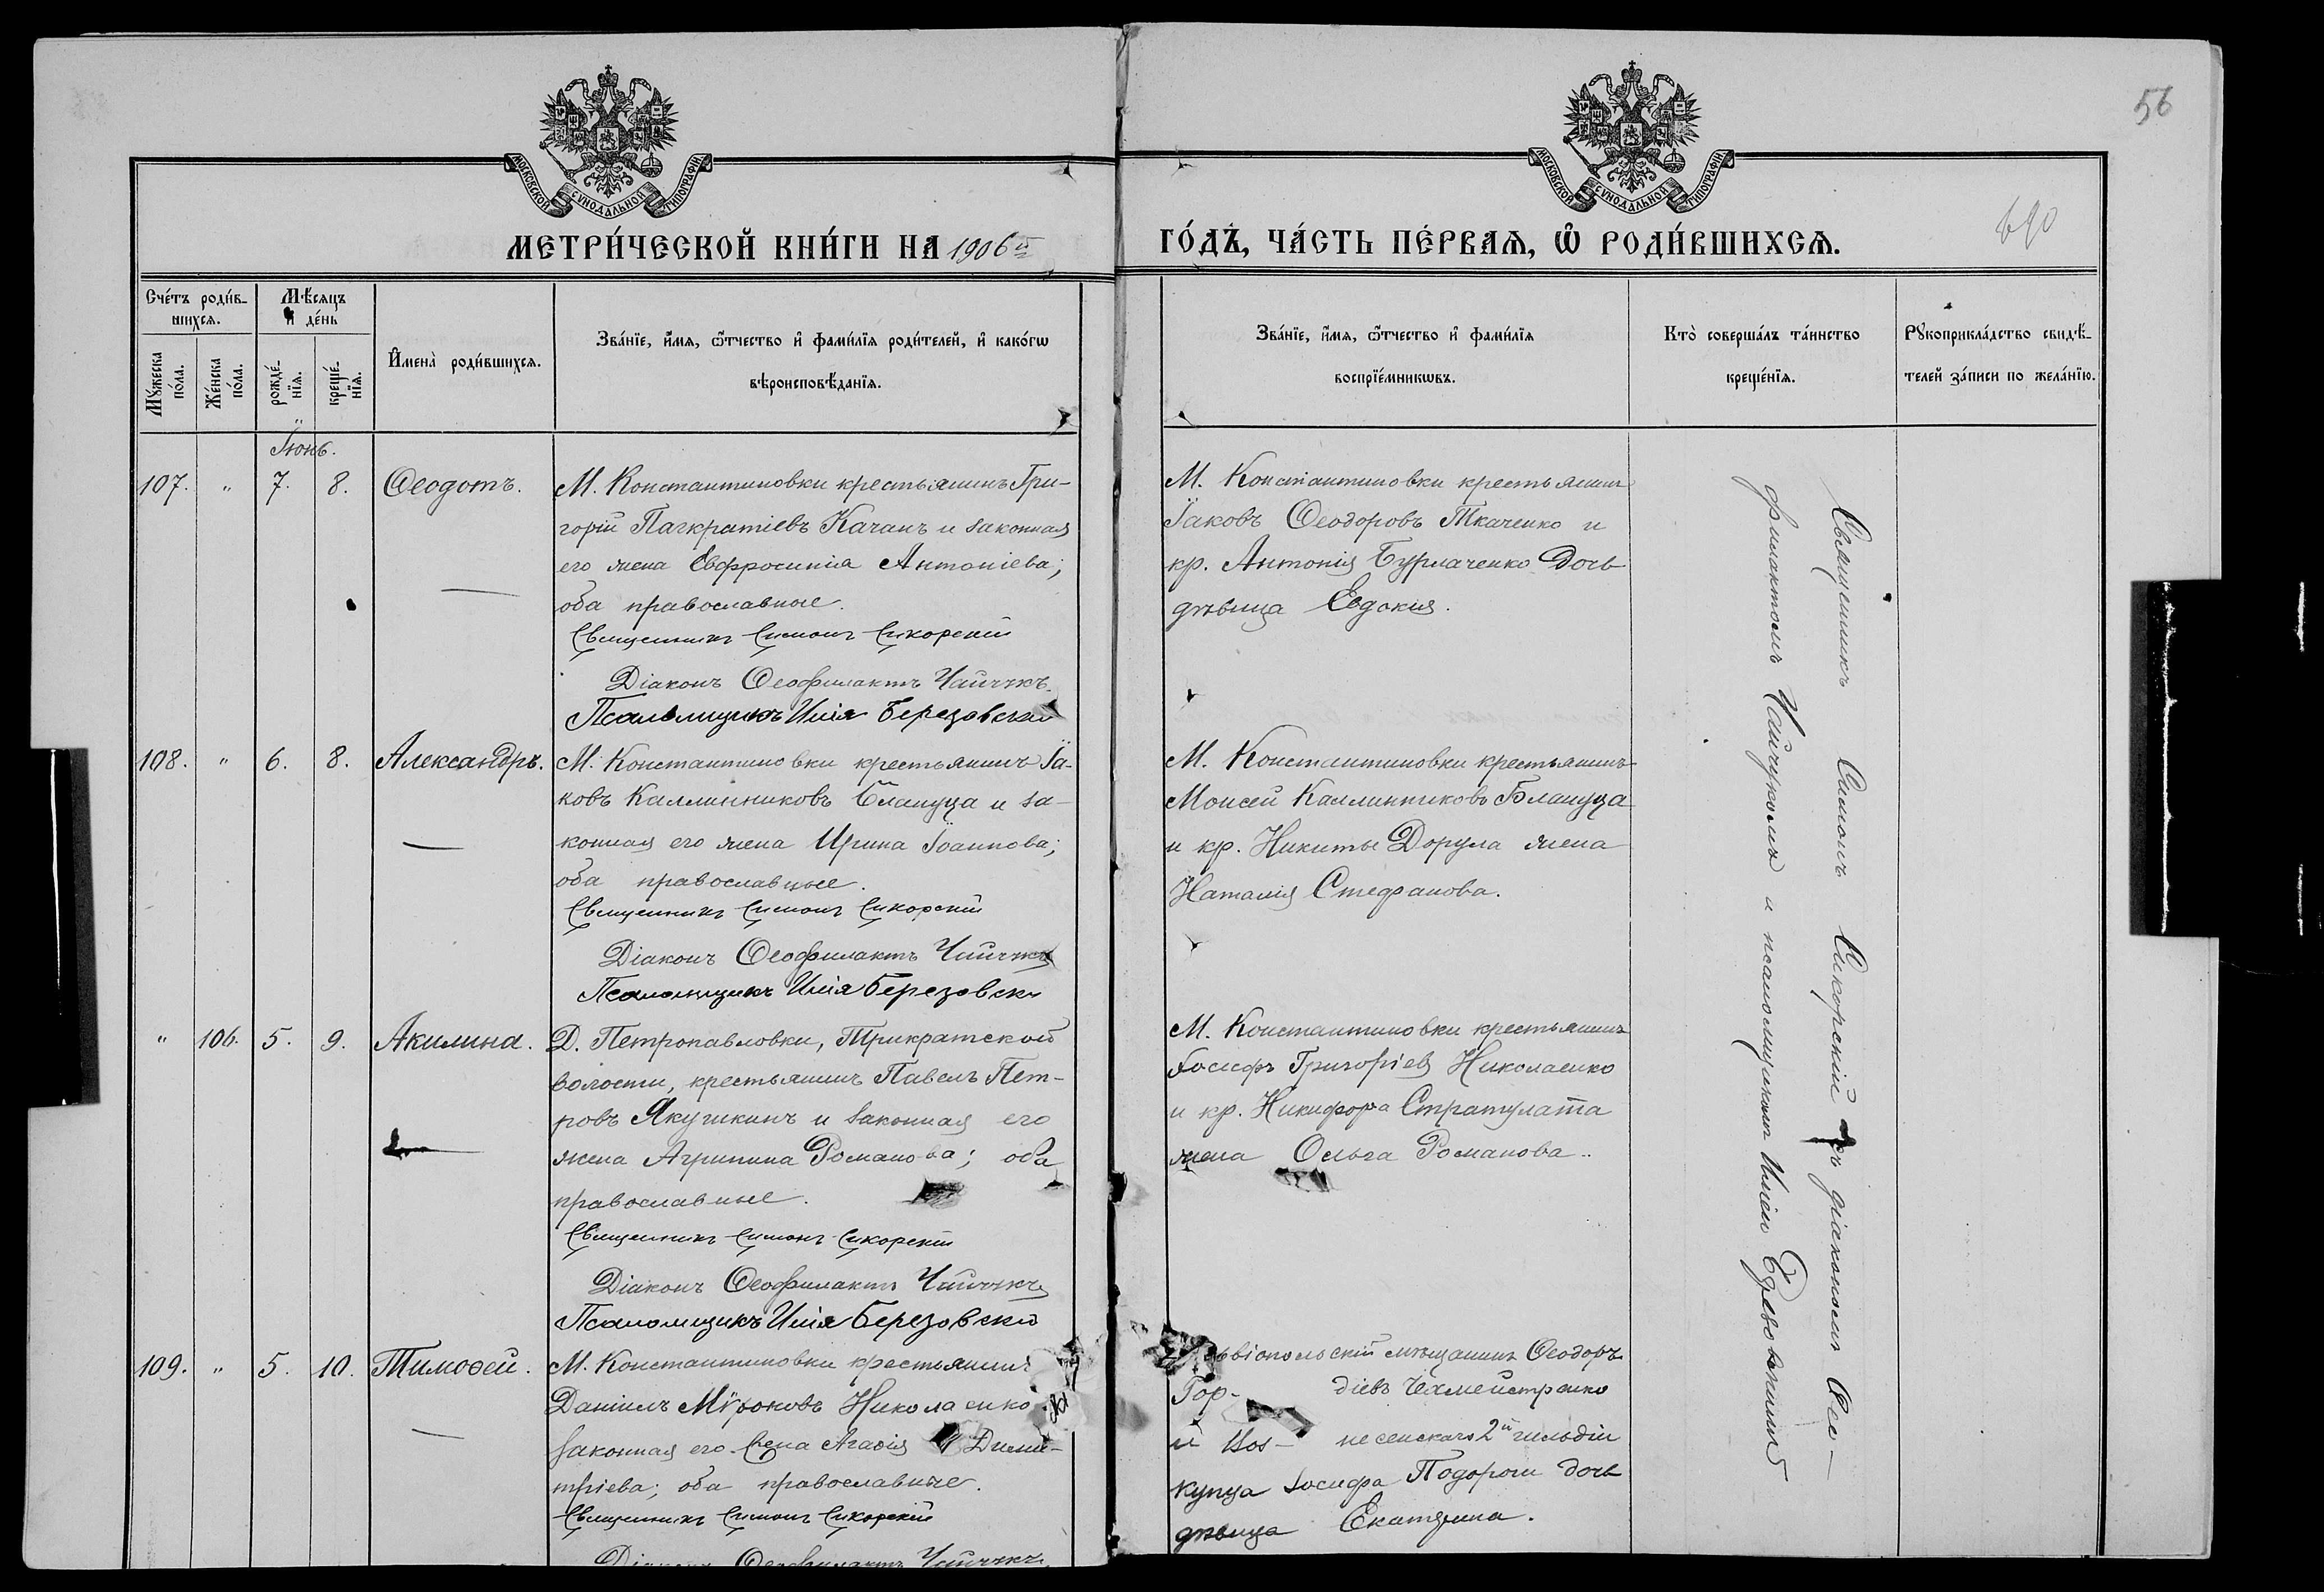 56
690
МОСКОВСКОЙ СѴНОДАЛЬНОЙ ТИПОГРАФІИ.
МОСКОВСКОЙ СѴНОДАЛЬНОЙ ТИПОГРАФІИ.
МЕТРИ́ЧЕСКОЙ КНИ́ГИ НА 1906й ГО́ДЪ, ЧА́СТЬ ПЕ́РВАѦ, Ѡ РОДИ́ВШИХСѦ.
Сче́тъ роди́в-
шихсѧ.
Мꙋ́жеска по́ла.
Же́нска по́ла.
Мѣ́сѧцъ
и де́нь
рожде́-
нїѧ.
креще́-
нїѧ.
Имена̀ роди́вшихсѧ.
Зва́нїе, и́мѧ, ѻ́тчество и фами́лїѧ роди́телей, и како́гѡ
вѣроисповѣ́данїѧ.
Зва́нїе, и́мѧ, ѻ́тчество и фами́лїѧ
воспрїе́мникѡвъ.
Кто̀ соверша́лъ та́инство
креще́нїѧ.
Рꙋкоприкла́дство свидѣ́-
телей за́писи по жела́нїю.
Іюнь.
107. " 7. 8. Ѳеодотъ.
М. Константиновки крестьянинъ Гри-
горій Панкратіевъ Качанъ и законная
его жена Евфросинія Антоніева;
оба православные.
Священникъ Симонъ Сикорскій
Діаконъ Ѳеофилактъ Чайчукъ.
Псаломщикъ Илія Березовскій
М. Константиновки крестьянинъ
Іаковъ Ѳеодоровъ Ткаченко и
кр. Антонія Бурлаченко дочь
дѣвица Евдокія.
108. " 6. 8. Александръ.
М. Константиновки крестьянинъ Іа-
ковъ Каллинниковъ Блануца и за-
конная его жена Ирина Іоаннова;
оба православные.
Священникъ Симонъ Сикорскій
Діаконъ Ѳеофилактъ Чайчукъ
Псаломщикъ Илія Березовскій
М. Константиновки крестьянинъ
Моисей Каллинниковъ Блануца
и кр. Никиты Дорула жена
Наталія Стефанова.
" 106. 5. 9. Акилина.
Д. Петропавловки, Трикратской
волости, крестьянинъ Павелъ Пет-
ровъ Якушкинъ и законная его
жена Агрипина Романова; оба
православные.
Священникъ Симонъ Сикорскій
Діаконъ Ѳеофилактъ Чайчукъ
Псаломщикъ Илія Березовскій
М. Константиновки крестьянинъ
Іосифъ Григоріевъ Николаенко
и кр. Никифора Стратулата
жена Ольга Романова.
109. " 5. 10. Тимоѳей.
М. Константиновки крестьянинъ
Даніилъ Мѵроновъ Николаенко
законная его жена Агаѳія Дими-
тріева; оба православные.
Священникъ Симонъ Сикорскій
Діаконъ Ѳеофилактъ Чайчукъ.
мѣщанинъ Ѳеодоръ
Гор- діевъ Чехмейстренко
и Воз- несенскаго 2й гильдіи
купца Іосифа Подороги дочь
дѣвица Екатерина.
Священникъ Симонъ Сикорскій съ діакономъ Ѳео-
филактомъ Чайчукомъ и псаломщикомъ Иліею